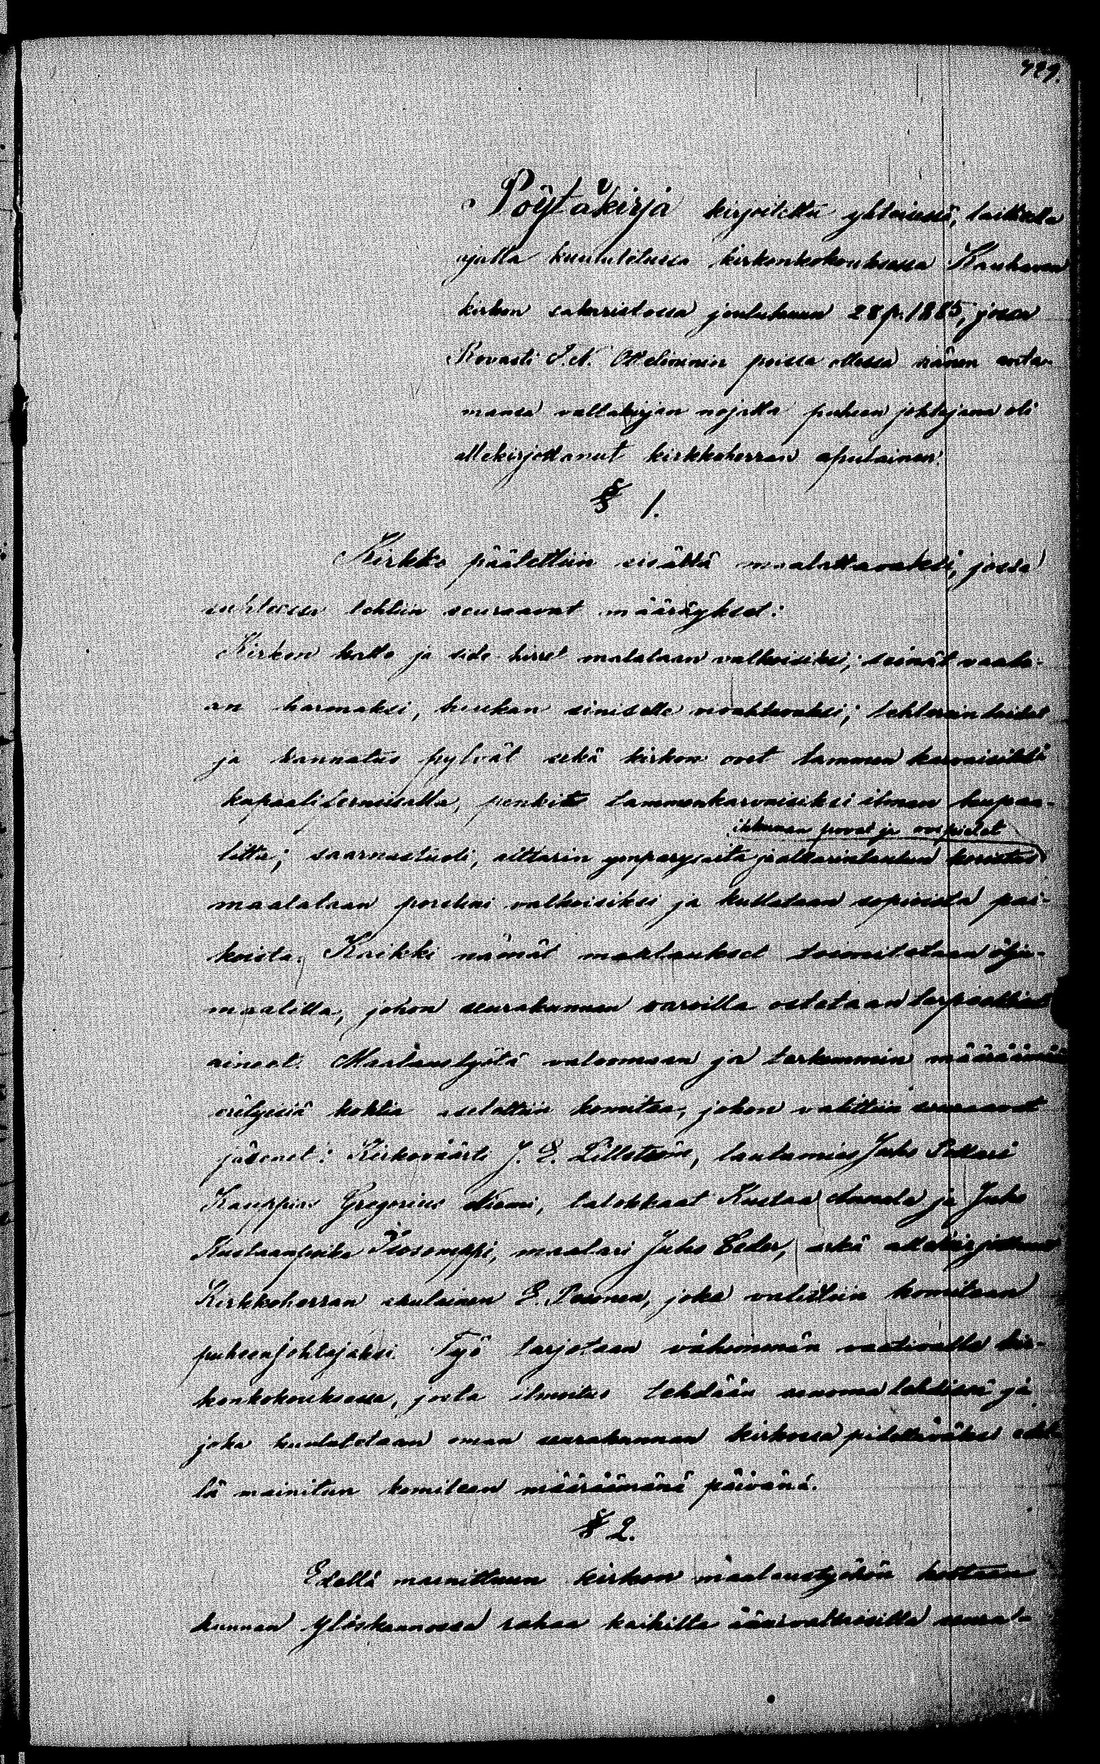 729.
Pöytäkirja kirjoitettu yhteisessä, laillisella
ajalla kuulutetussa kirkonkokouksessa Kauhavan
kirkon sakaristossa joulukuun 28 p. 1885, jossa
Rovasti J. N. poissa ollessa hänen anta-
mansa valtakirjan nojalla puheen johtajana oli
allekirjottanut kirkkoherran apulainen.
§ 1.
Kirkko päätettiin sisältä maalattavaksi, jossa
suhteessa tehtiin seuraavat määräykset:
Kirkon katto ja side hirret maalataan valkoisiksi; seinät vaale-
an harmaksi, hiukan siniselle vivahtavaksi; lehterein laidat
ja kannatus pylväät sekä kirkon ovet tammen karvaisiksi
kapaali fernissalla, penkit tammenkarvaisiksi ilman kupaa-
ikkunan puoet ja ovipielet
litta; saarnastuoli, alttarin ympärysaita ja alttaritaulun koristus
maalataan posliini valkoisiksi ja kullataan sopivista pai-
koista. Kaikki nämät maalaukset toimitetaan öljy-
maalilla, johon seurakunnan varoilla ostetaan tarpeelliset
aineet. Maalaustyötä valvomaan ja tarkemmin määräämään
erityisiä kohtia asetettiin komitea, johon valittiin seuraavat
jäsenet: Kirkoväärti J. E. lautamies Juho
Kauppias Gregorius Niemi, talokkaat Kustaa Annala ja Juho
Kustaanpoika Isosomppi, maalari Juho Ceder, sekä allekirjottanut
Kirkkoherran apulainen E. Pesonen, joka valittiin komitean
puheenjohtajaksi. Työ tarjotaan vähimmän vaativalle kir-
konkokouksessa, josta ilmoitus tehdään sanomalehdissä ja
joka kuulutetaan oman seurakunnan kirkossa pidettäväksi edel-
lä mainitun komitean määräämänä päivänä.
§ 2.
Edellä mainittuun kirkon maalaustyöhön kootaan
kunnan ylöskannossa rahaa kaikilta seura-